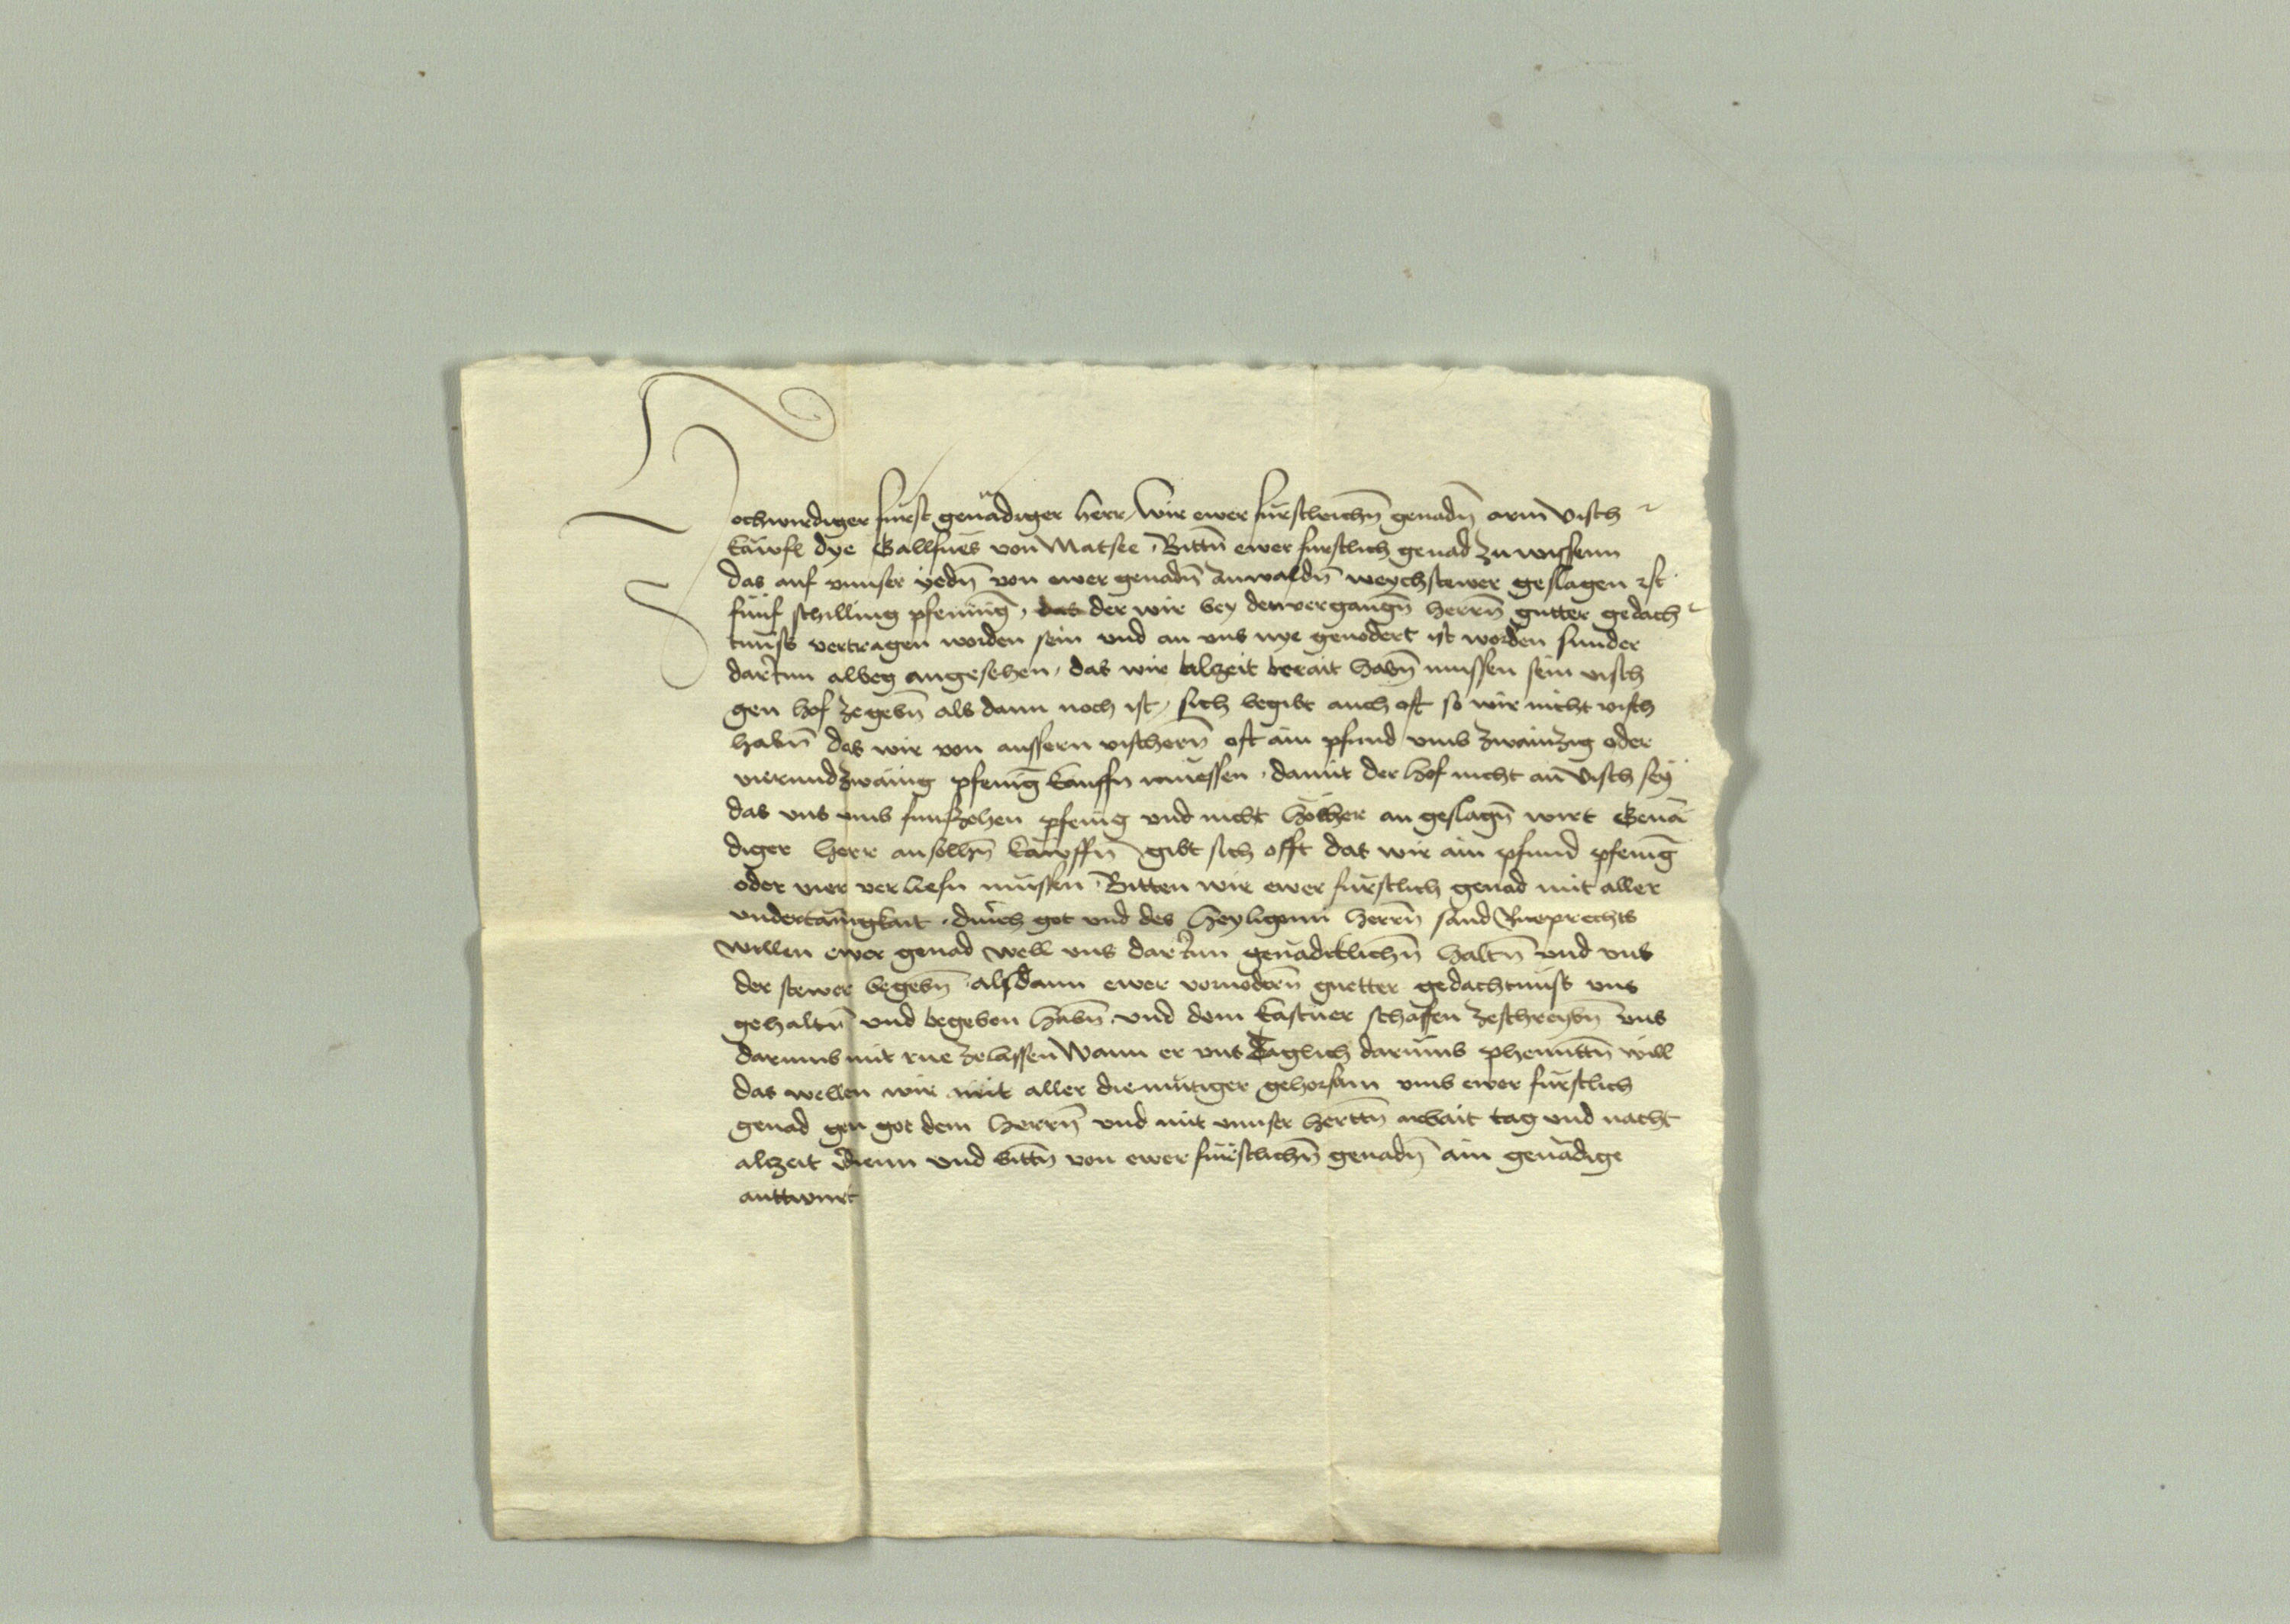 Hochwirdiger furst genadiger herr, Wir ewer furstleichn̄ genadn̄ arm Visch
kawfl dye Gallfues von Matsee, Bittn̄ ewer furstlich genad zu wissenn
das auf vnnser yedn̄ von ewer genadn̄ Anwaldn̄ weychstewer geslagen ist
funf schilling pfeninḡ, das der wir bey den vergangn̄ herrn̄ gutter gedach
tnuss vertragen worden sein vnd an vns nye geuodert ist worden sunder
darinn albeg angesehen, das wir alzeit berait habn̄ mussen sein visch
gen hof zegebn̄ als dann noch ist, sich begibt auch oft so wir nicht visch
habn̄ das wir von aussern vischern̄ oft ain pfund vmb zwainzig oder
vierundzwaing pfeniḡ kauffn muessen, damit der hof nicht an̄ Visch sey
das vns vmb funfzehen pfenig vnd nicht hoher an geslagn̄ wirt Gena
diger herr an solhn̄ kawffn̄ gibt sich offt das wir ain pfund pfeniḡ
oder vier verliesn mussen, Bitten wir ewer furstlich genad mit aller
vndertanigkait, durch got vnd des heyligenn herrn̄ sand Rueprechts
willen ewer genad well vns darinn genadiklichn̄ haltn̄ vnd vns
der stewer begebn̄ alsdann ewer voruodern̄ guetter gedachtnuss vns
gehaltn̄ vnd begeben habn̄ vnd dem kastner schaffen zeschreybn̄ vns
darumb mit rue zelassen Wann er vns Taglich darumb phennttn̄ will
das wellen wir mit aller diemutiger gehorsam vmb ewer furstlich
genad gen got dem herrn̄ vnd mit vnnser herttn̄ arbait tag vnd nacht
alzeit dienn vnd bittn̄ von ewer furstlichn̄ genadn̄ ain genadige
anttwurt